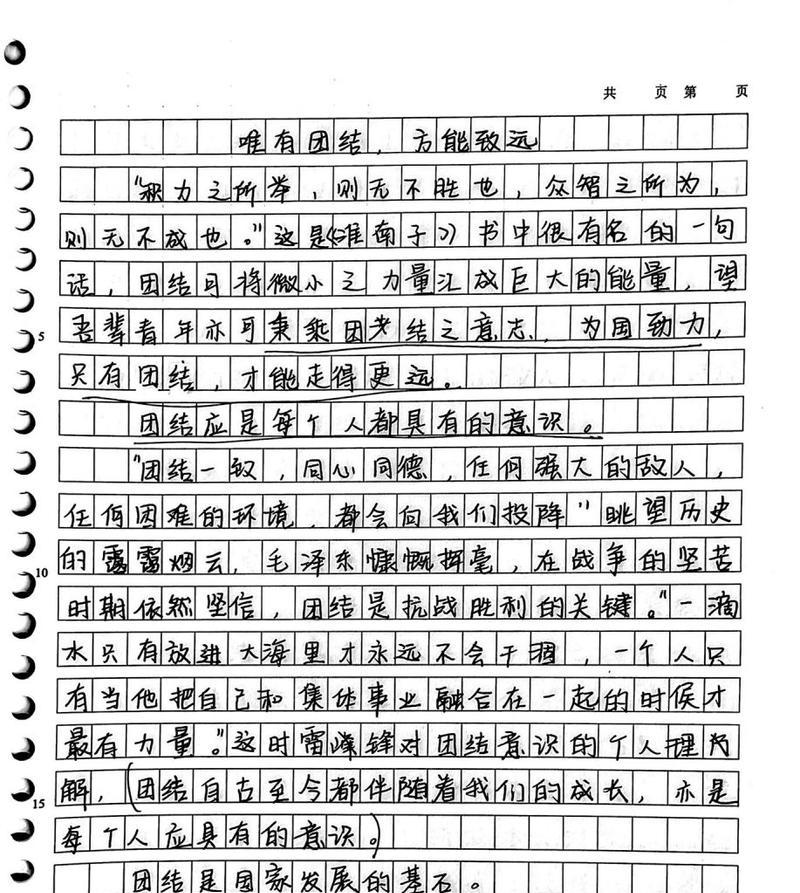 共 页 第 页
唯有团结，方能致远
“积力之所举，则无不胜也，众智之所为，
则无不成也。”这是《淮南子》书中很有名的一句
话，团结可将微小之力量汇成巨大的能量，望
5 吾辈青年亦可秉乘团结之意志，为国助力，
只有团结，才能走得更远。
团结应是每个人都具有的意识。
“团结一致，同心同德，任何强大的敌人，
任何困难的环境，都会向我们投降”眺望历史
10 的烟云，毛泽东慷慨挥毫，在战争的坚苦
时期依然坚信，团结是抗战胜利的关键。“一滴
水只有放进大海里才永远不会干涸，一个人只
有当他把自己和集体事业融合在一起的时候才
最有力量。”这时雷锋对团结意识的个人理
15 解，（团结自古至今都伴随着我们的成长，亦是
每个人应具有的意识。）
团结是国家发展的基石。